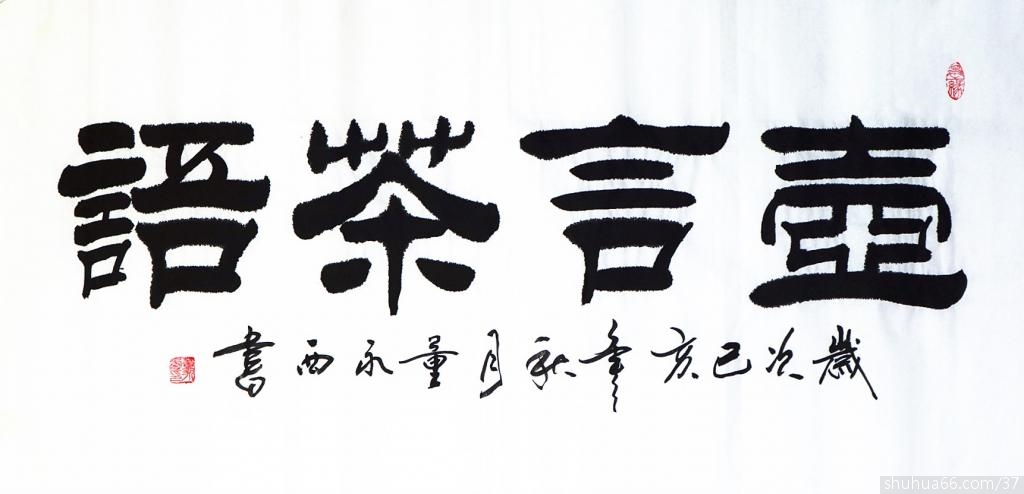 壺言茶語
歲次己亥年秋月永西書
shuhua66.com/37